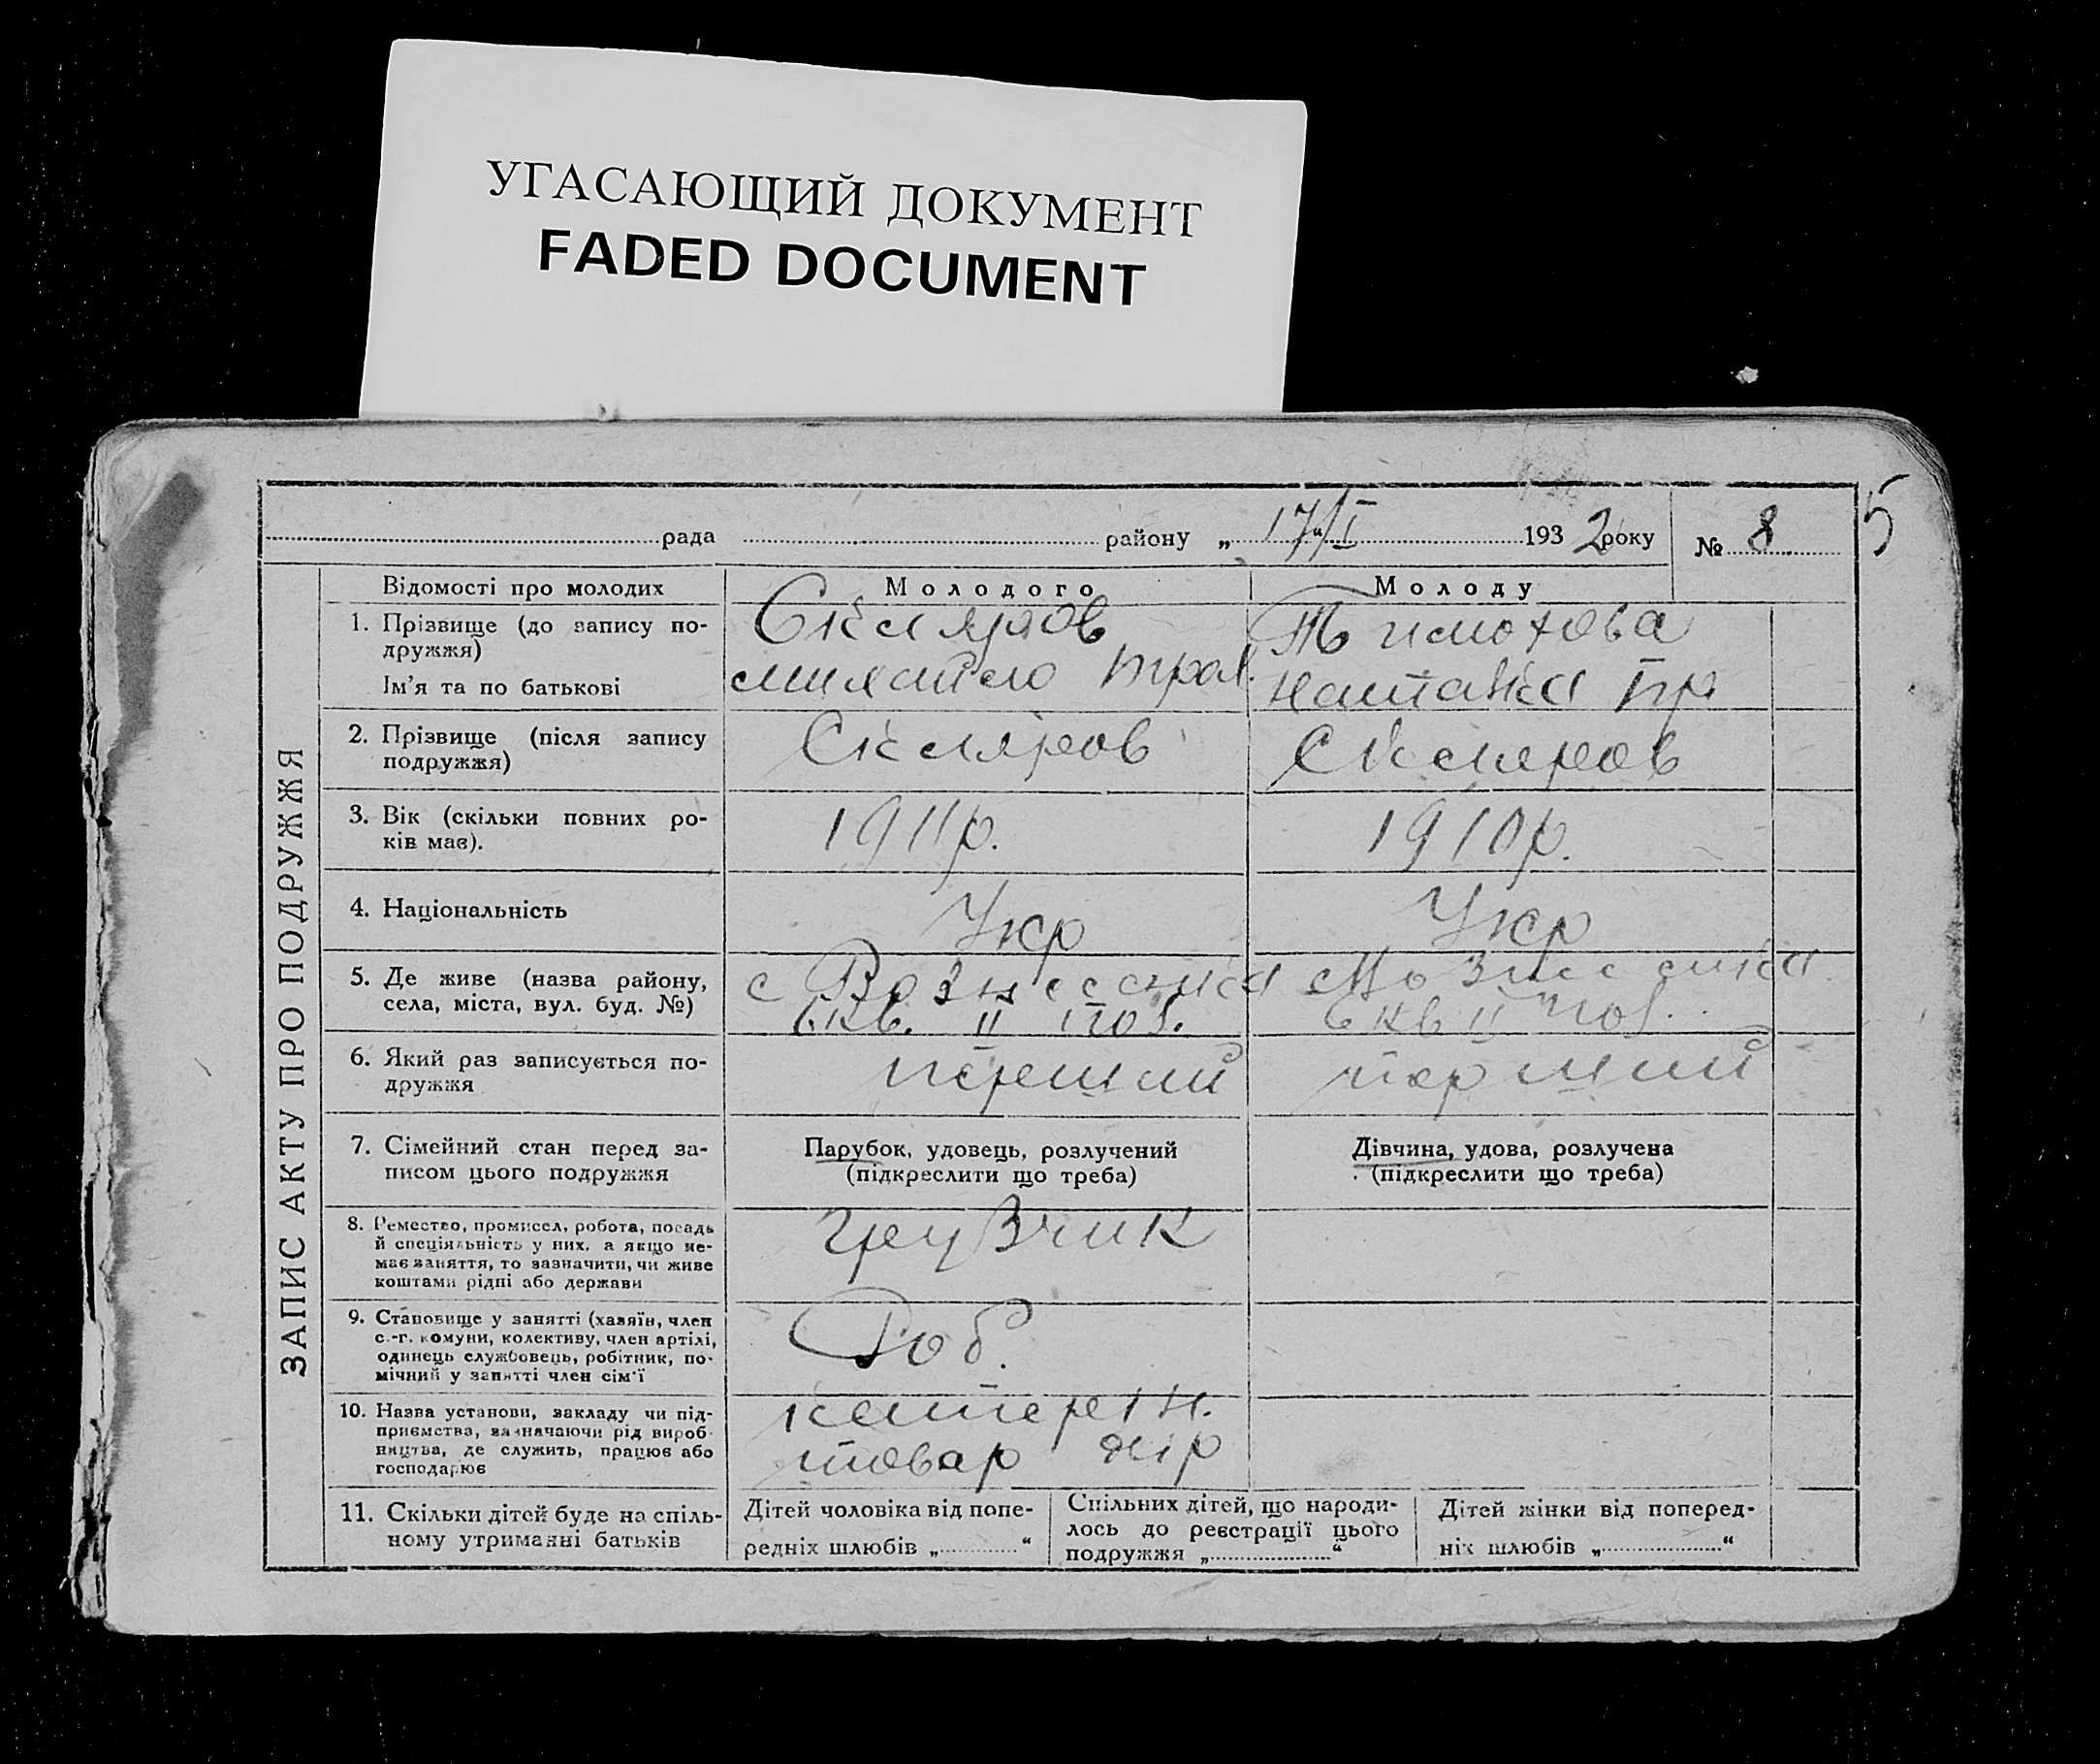 УГАСАЮЩИЙ ДОКУМЕНТ
FADED DOCUMENT
5
рада району „ 17/I 1932 року № 8
ЗАПИС АКТУ ПРО ПОДРУЖЖЯ
Відомості про молодих
Молодого
Молоду
1. Прізвище (до запису по-
дружжя)
Ім'я та по батькові
Скляров
Тимохова
Наталка Гр
2. Прізвище (після запису
подружжя)
Скляров
Скляров
3. Вік (скільки повних ро-
ків має).
1911р.
1910р.
4. Національність
Укр
Укр
5. Де живе (назва району,
села, міста, вул. буд. №)
с Вознесенка
6 кв. II пов.
Вознесенка
6 кв II пов.
6. Який раз записується по-
дружжя
перший
перший
7. Сімейний стан перед за-
писом цього подружжя
Парубок, удовець, розлучений
(підкреслити що треба)
Дівчина, удова, розлучена
(підкреслити що треба)
8. Ремество, промисел, робота, посада
й спеціяльність у них, а якщо не-
має заняття, то зазначити, чи живе
коштами рідні або держави
грузчик
9. Становище у занятті (хазяїн, член
с.-г. комуни, колективу, член артілі,
одинець службовець, робітник, по-
мічний у занятті член сім'ї
Роб.
10. Назва установи, закладу чи під-
приємства, зазначаючи рід вироб-
ництва, де служить, працює або
господарює
товар
11. Скільки дітей буде на спіль-
ному утриманні батьків
Дітей чоловіка від попе-
редніх шлюбів „ “
Спільних дітей, що народи-
лось до реєстрації цього
подружжя „ “
Дітей жінки від поперед-
ніх шлюбів „ “